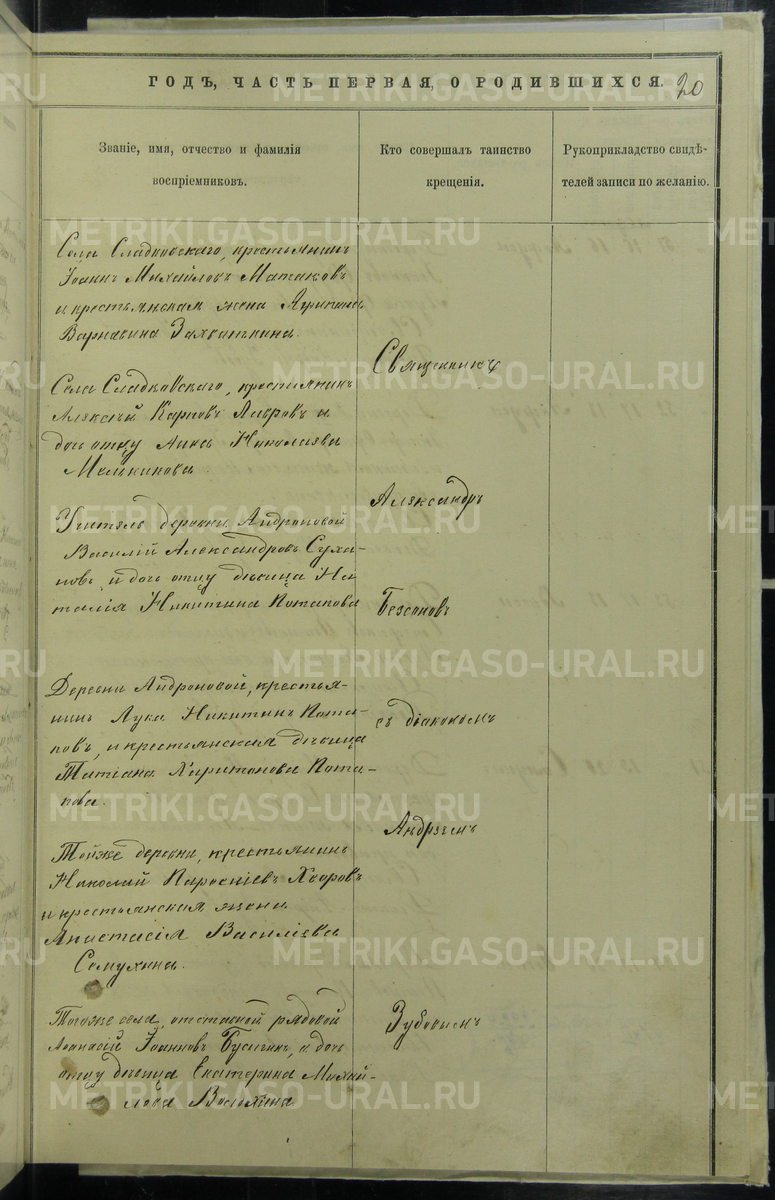 ГОДЪ, ЧАСТЬ ПЕРВАЯ, О РОДИВШИХСЯ. 20
Званіе, имя, отчество и фамилія
воспріемниковъ.
Кто совершалъ таинство
крещенія.
Рукоприкладство свидѣ-
телей записи по желанію.
Села Сладковскаго, крестьянинъ
Іоаннъ Михайловъ Матаковъ
и крестьянская жена Агрипина
Варнавина
Села Сладковскаго, крестьянинъ
Алексѣй Карповъ Лавровъ и
дочь отцу Анна Николаева
Мелькинова
Учитель деревни Андроновой
Василій Александровъ Суха-
новъ, и дочь отцу дѣвица На-
талія Никитина Потапова
Деревни Андроновой, крестья-
нинъ Лука Никитинъ Пота-
повъ, и крестьянская дѣвица
Татіана Харитонова Пота-
пова.
Тойже деревни, крестьянинъ
Николай Хворовъ
и крестьянская жена
Анастасія Василіева
Семухина.
Тогоже села, отставной рядовой
Аѳанасій Іоанновъ Бусыгинъ, и дочь
отцу дѣвица Екатерина Михай-
лова
Священникъ
Александръ
Безсоновъ
съ діакономъ
Андреемъ
Зубовымъ
METRIKI.GASO-URAL.RU